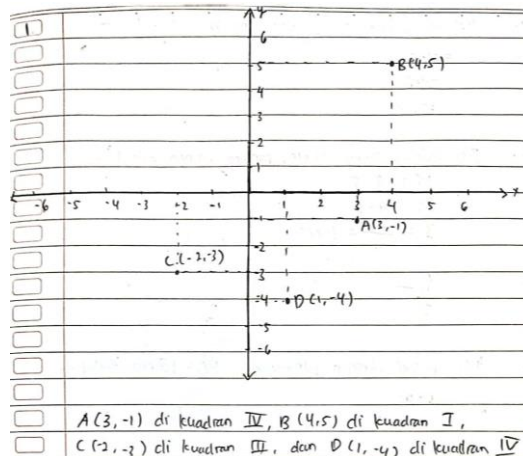 1
y
6
5
B(4,5)
4
3
2
1
x
-6 -5 -4 -3 -2 -1 1 2 3 4 5 6
-1
A(3,-1)
-2
C(-2,-3)
-3
-4
D(1,-4)
-5
-6
A(3,-1) di kuadran IV, B(4,5) di kuadran I,
C(-2,-3) di kuadran III, dan D(1,-4) di kuadran IV